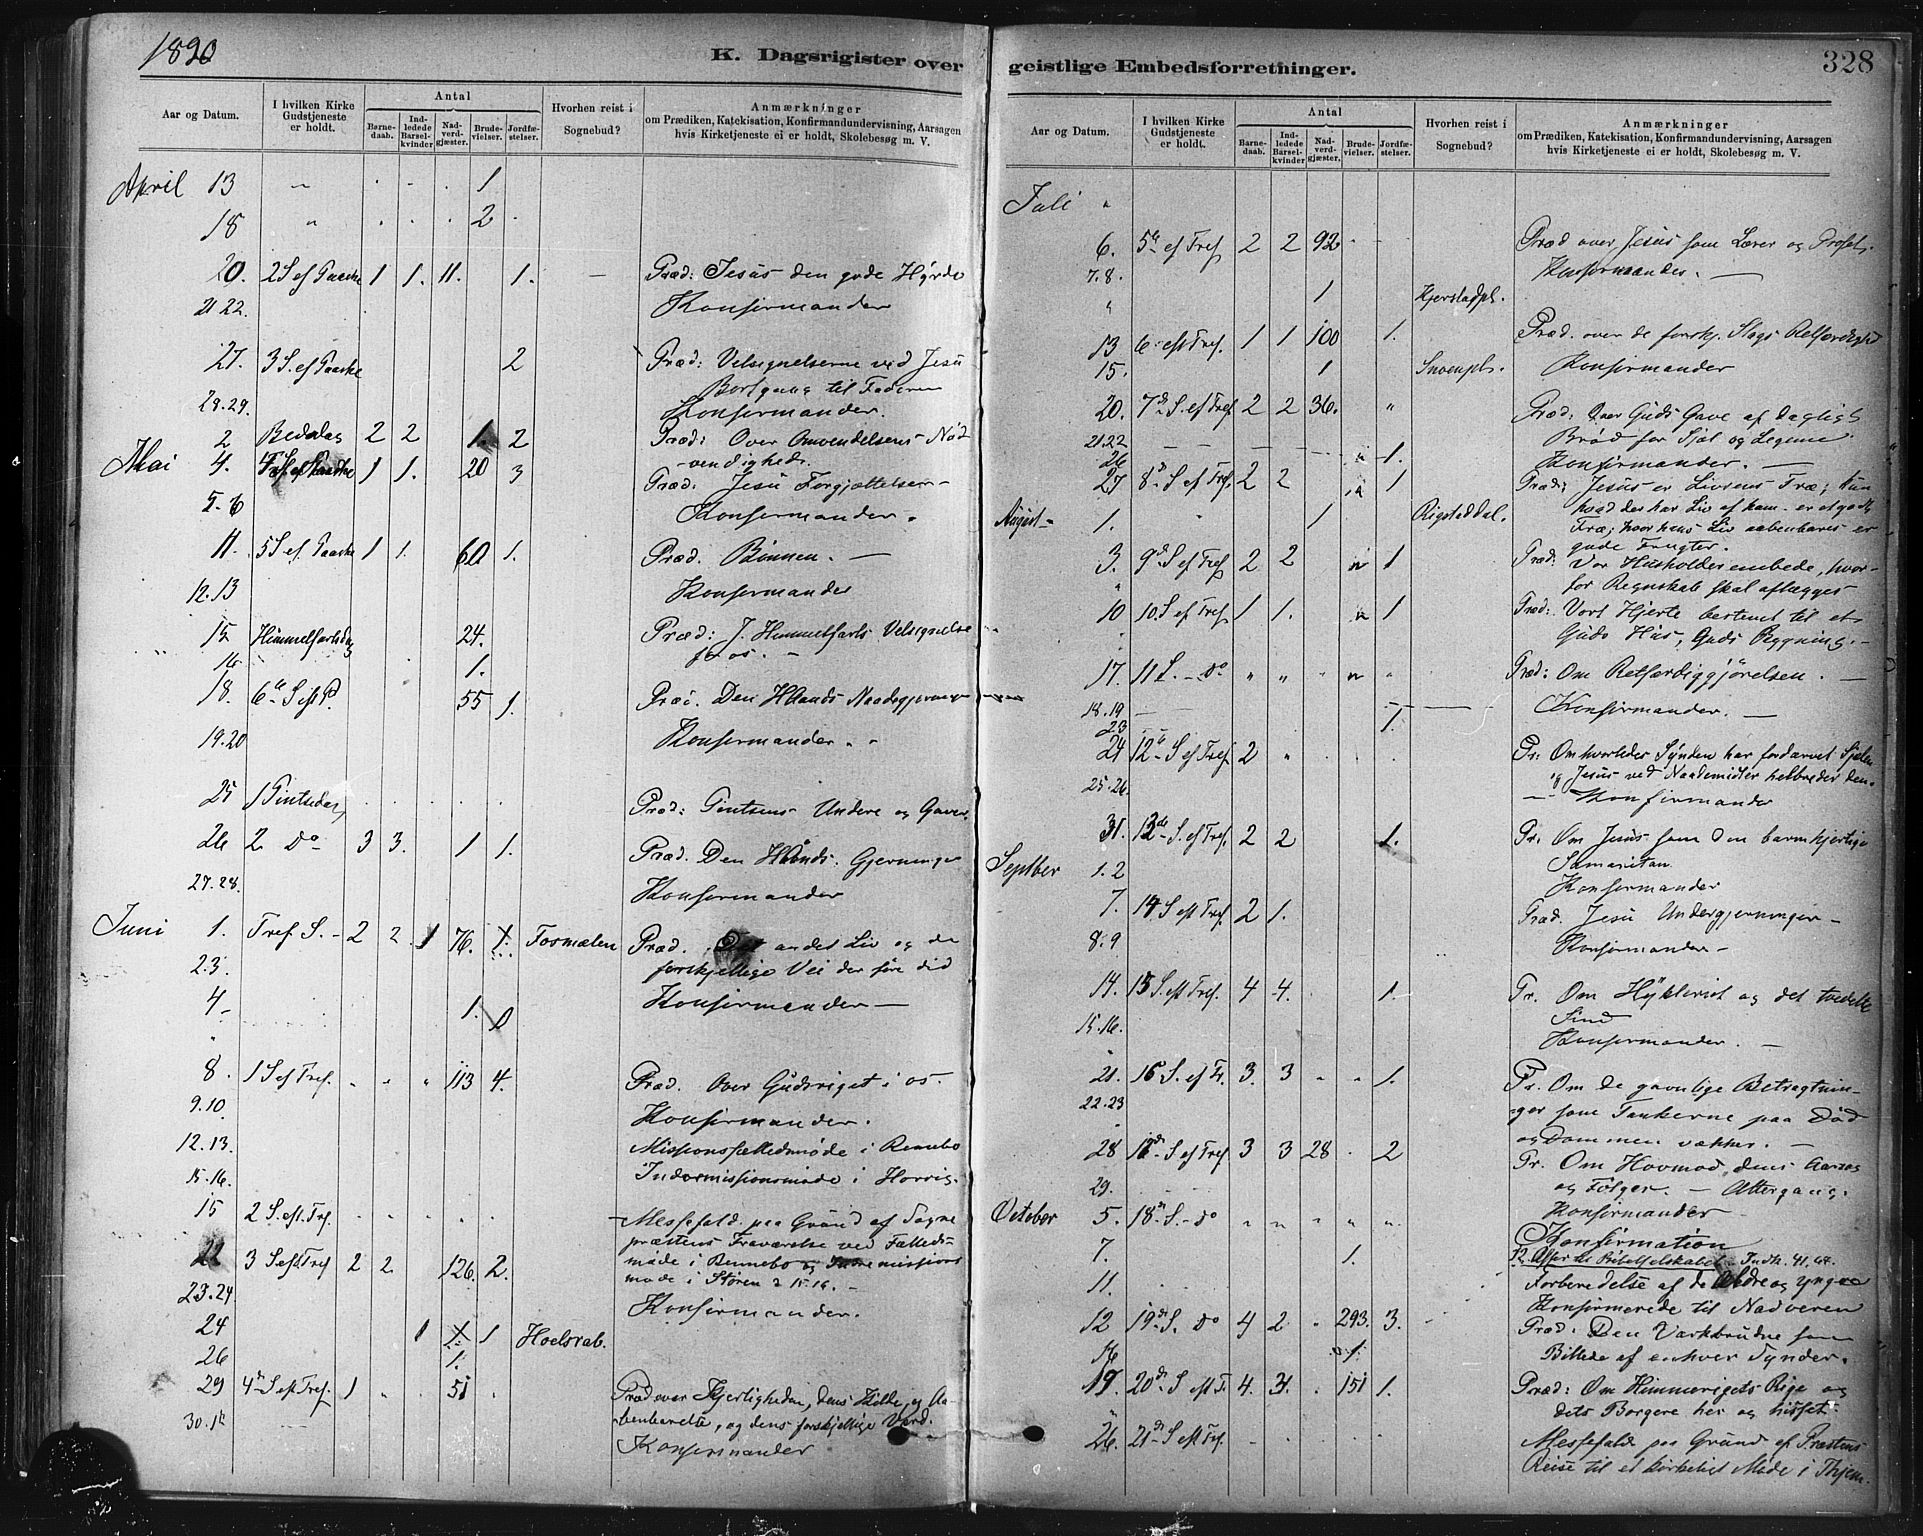 1890
K. Dagsrigister over
Aar og Datum. I hvilken Kirke Gudstjeneste er holdt. Antal Barnedaab. Indledede Barselkvinder Nadverdgjæster. Brudevielser. Jordfæstelser. Hvorhen reist i Sognebud? Anmærkninger om Prædiken, Katekisation, Konfirmandundervisning, Aarsagen hvis Kirketjeneste ei er holdt, Skolebesøg m. V.
April 13 " 1
18 " 2
20. 2 S ef Paaske 1 1. 11. 1. — Præd: Jesus den gode Hyrde
21 22. Konfirmander
27. 3 S. ef Paaske 2 Præd: Velsignelserne ved Jesu
Bortgang til Faderen
28.29. Konfirmander.
2 Bededag 2 2 1. 2 Præd: Over Omvendelsens Nød
Mai 4. ef Paaske 1 1. 20 3 -vendighed.
Præd: Jesu Forgjættelser -
5. 6 Konfirmander.
11. 5 S ef Paaske 1 1. 60 1. Præd. Bønnen. —
12.13 Konfirmander
15 Himmelfartsdag 24. Præd: J. Himmelfarts Velsignelse
for os. -
16 1.
18. 6te S. 55 1. Præd. Den H Aands Naadegjerninger
19.20 Konfirmander.
25 1 Pintsedag Præd: Pintsens Undere og Gaver
26 2 do 3 3. 1 1. Præd. Den H Aands Gjerninger
27.28. Konfirmander
Juni 1. Tref S. - 2 2. 1 76. 1. Fosmælen Præd. andet Liv og de
2.3. forskjellige Vei der føre did
4 - 1. Konfirmander —
8. 1 S ef Tref. " " " 113 4. Præd. Over Gudsriget i os.
9.10. Konfirmander.
12.13. Missionsfælledsmøde i Rennebo
15.16. Indermissionsmøde i Horrig.
15 2 S. eft. Tref. Messefald paa Grund af Sogne
præstens Fraværelse ved Fælleds-
22 3 S eft Tref 2 2 126. 2. møde i Rennebo og Indremissions
møde i Støren d 15-16. -
23.24. Konfirmander.
24 1 1. 1 Hoelsrab.
26 1.
29 4de S eft Tref. 1 51 Præd over Kjærligheden, dens Kilde, og Aa-
benbarelse, og dens forskjellige Værd.
30. Konfirmander

geistlige Embedsforretninger. 328
Aar og Datum. I hvilken Kirke Gudstjeneste er holdt. Antal Barnedaab. Indledede Barselkvinder Nadverdgjæster. Brudevielser. Jordfæstelser. Hvorhen reist i Sognebud? Anmærkninger om Prædiken, Katekisation, Konfirmandundervisning, Aarsagen hvis Kirketjeneste ei er holdt, Skolebesøg m. V.
Juli "
6. 5te ef Tref 2 2 92 Præd over Jesus som Lærer og Profet.
7.8. Konfirmander. —
" 1 Kjerstadpl.
13 6 eft Tref. 1 1 100 1. Præd. over de forskj. Slags Retfærdighed
15. 1 Snoenpl. Konfirmander
20. 7de S. ef Tref 2 2 36. " Præd: Over Guds Gave af Dagligt
21.22 Brød for Sjæl og Legeme.
26 1. Konfirmander. —
27 8de S ef Tref. 2 2 1 Præd; Jesus er Livsens Træ; kun
August 1. 1 Rigstaddal. hvad der har Liv af ham er et godt
Træ; hvor hans Liv aabenbares er
gode Frugter.
3. 9de S ef Tref 2 2 1 Præd: Vor Husholderembede, hvor-
for Regnskab skal aflægges
10 10. S ef Tref 1 1. 1 Præd: Vort Hjerte bestemt til et
Guds Hus, Guds Bygning. -
17. 11 S. - do " " Præd: Om Retfærdiggjørelsen. —
18.19 Konfirmander. —
23 1.
24 12te S ef Tref. 2 " Pr: Om hvorledes Synden har fordærvet Sjælen
og Jesus ved Naademidler helbreder den.
25.26. Konfirmander
31. 13de S. ef Tref. 2 2 1. Pr. Om Jesus som Den barmhjertige
Samaritan
Septber 1.2 Konfirmander
7. 14 S eft Tref. 2 1. Præd. Jesu Undergjerninger -
8.9 Konfirmander -
14. 15 S. eft Tref. 4 4. 1. Pr. Om Hykleriet og det tvedelte
Sind
15.16. Konfirmander. -
21. 16 S. ef Tr. 3. 3 1. Pr. Om de gavnlige Betragtnin-
22.23 ger som Tankerne paa Død
og Dommen vækker. -
28 S ef Tref 3 3 28 2 Pr. Om Hovmod, dens Aarsag
og Følger. - Altergang.
29. Konfirmander
October 5. 18de S. - do Konfirmation
7. 1. Bibelselskabet - Indk.
11. Forberedelse af de Ældre og yngre
Konfirmerede til Nadveren
12 19de S. do 4 2 " 293. 3. Præd. Den Værkbrudne som
Billede af enhver Synder.
16 1.
19. 20de S eft T. 4. 3. 151 1. Præd: Om Himmerigets Rige og
dets Borgere her og hisset.
26. 21de S eft Tref. Messefald paa Grund af Præstens
Reise til et kirkeligt Møde i